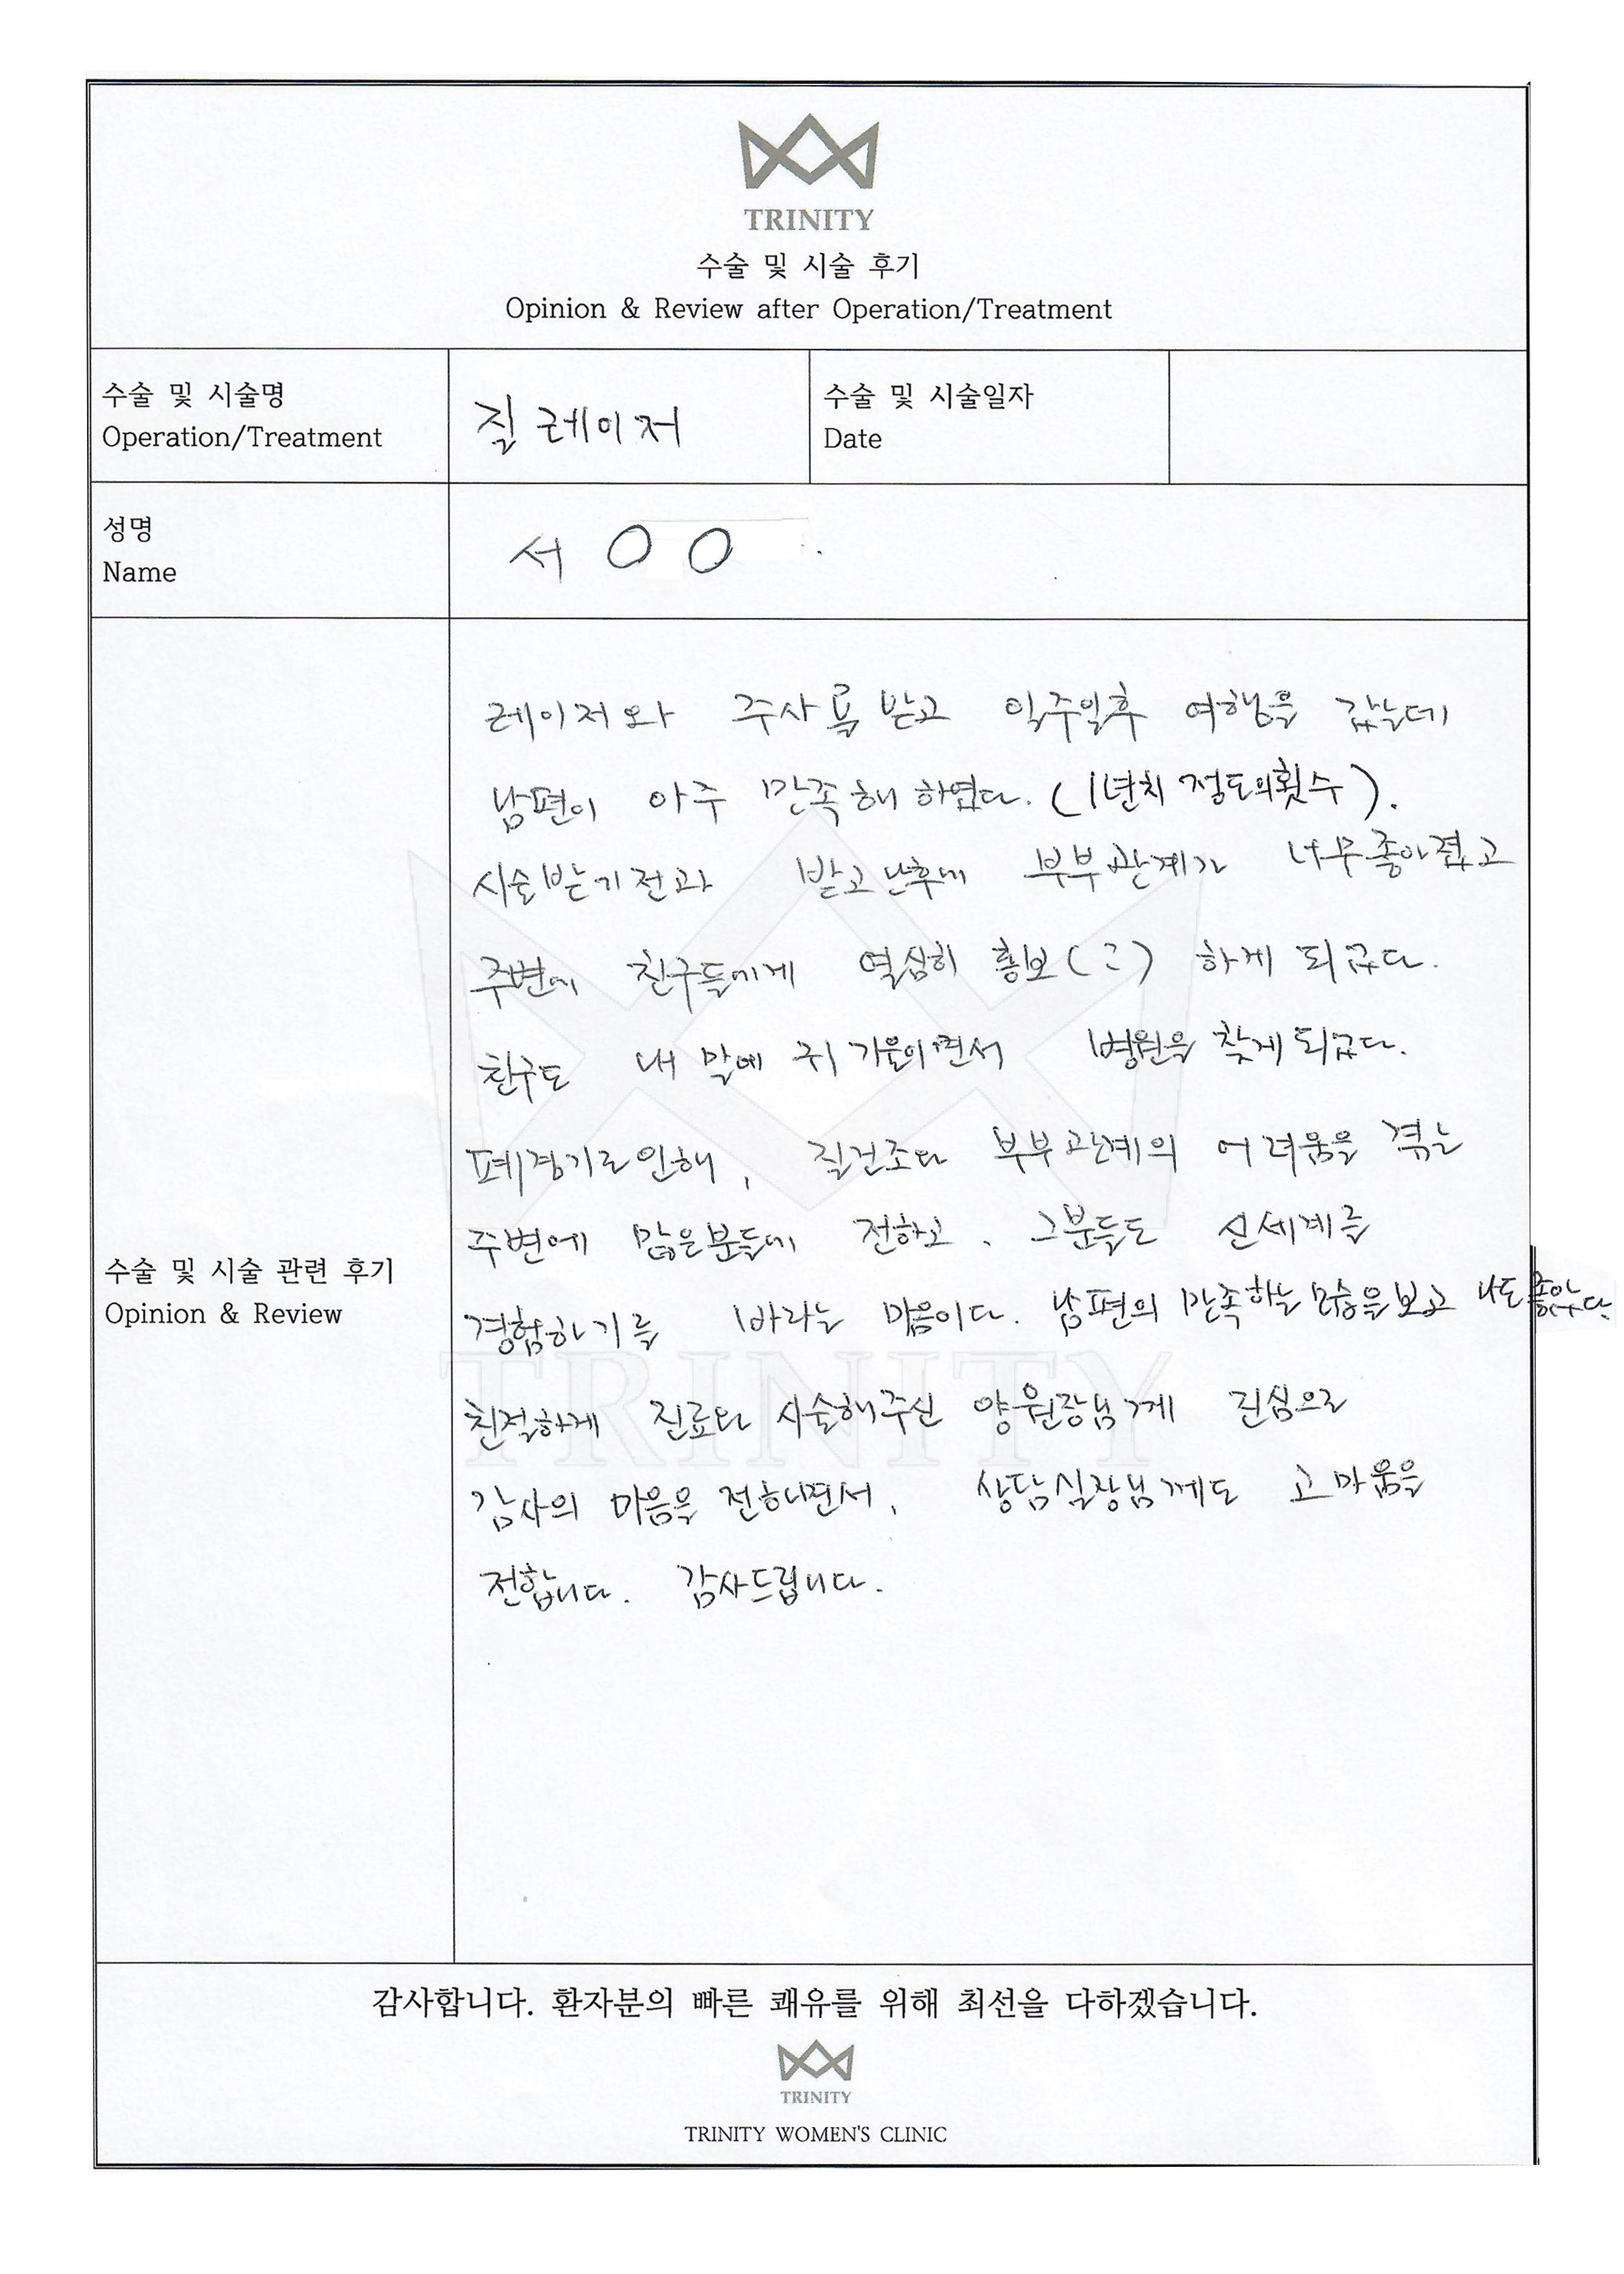 TRINITY
수술 및 시술 후기
Opinion & Review after Operation/Treatment
수술 및 시술명
Operation/Treatment
질 레이저
수술 및 시술일자
Date
성명
Name
서 O O .
레이저와 주사를 받고 일주일후 여행을 갔는데
남편이 아주 만족해 하였다. (1년치 정도의횟수).
시술받기전과 받고난후에 부부관계가 너무좋아졌고
주변에 친구들에게 열심히 홍보(?) 하게 되었다.
친구도 내 말에 귀 기울이면서 병원을 찾게되었다.
폐경기로인해, 질건조와 부부관계의 어려움을 겪는
주변에 많은분들에 전하고, 그분들도 신세계를
경험하기를 바라는 마음이다. 남편의 만족하는 모습을보고 나도좋았다.
수술 및 시술 관련 후기
Opinion & Review
친절하게 진료와 시술해주신 양원장님께 진심으로
감사의 마음을 전하면서, 상담실장님께도 고마움을
전합니다. 감사드립니다.
TRINITY
감사합니다. 환자분의 빠른 쾌유를 위해 최선을 다하겠습니다.
TRINITY
TRINITY WOMEN'S CLINIC